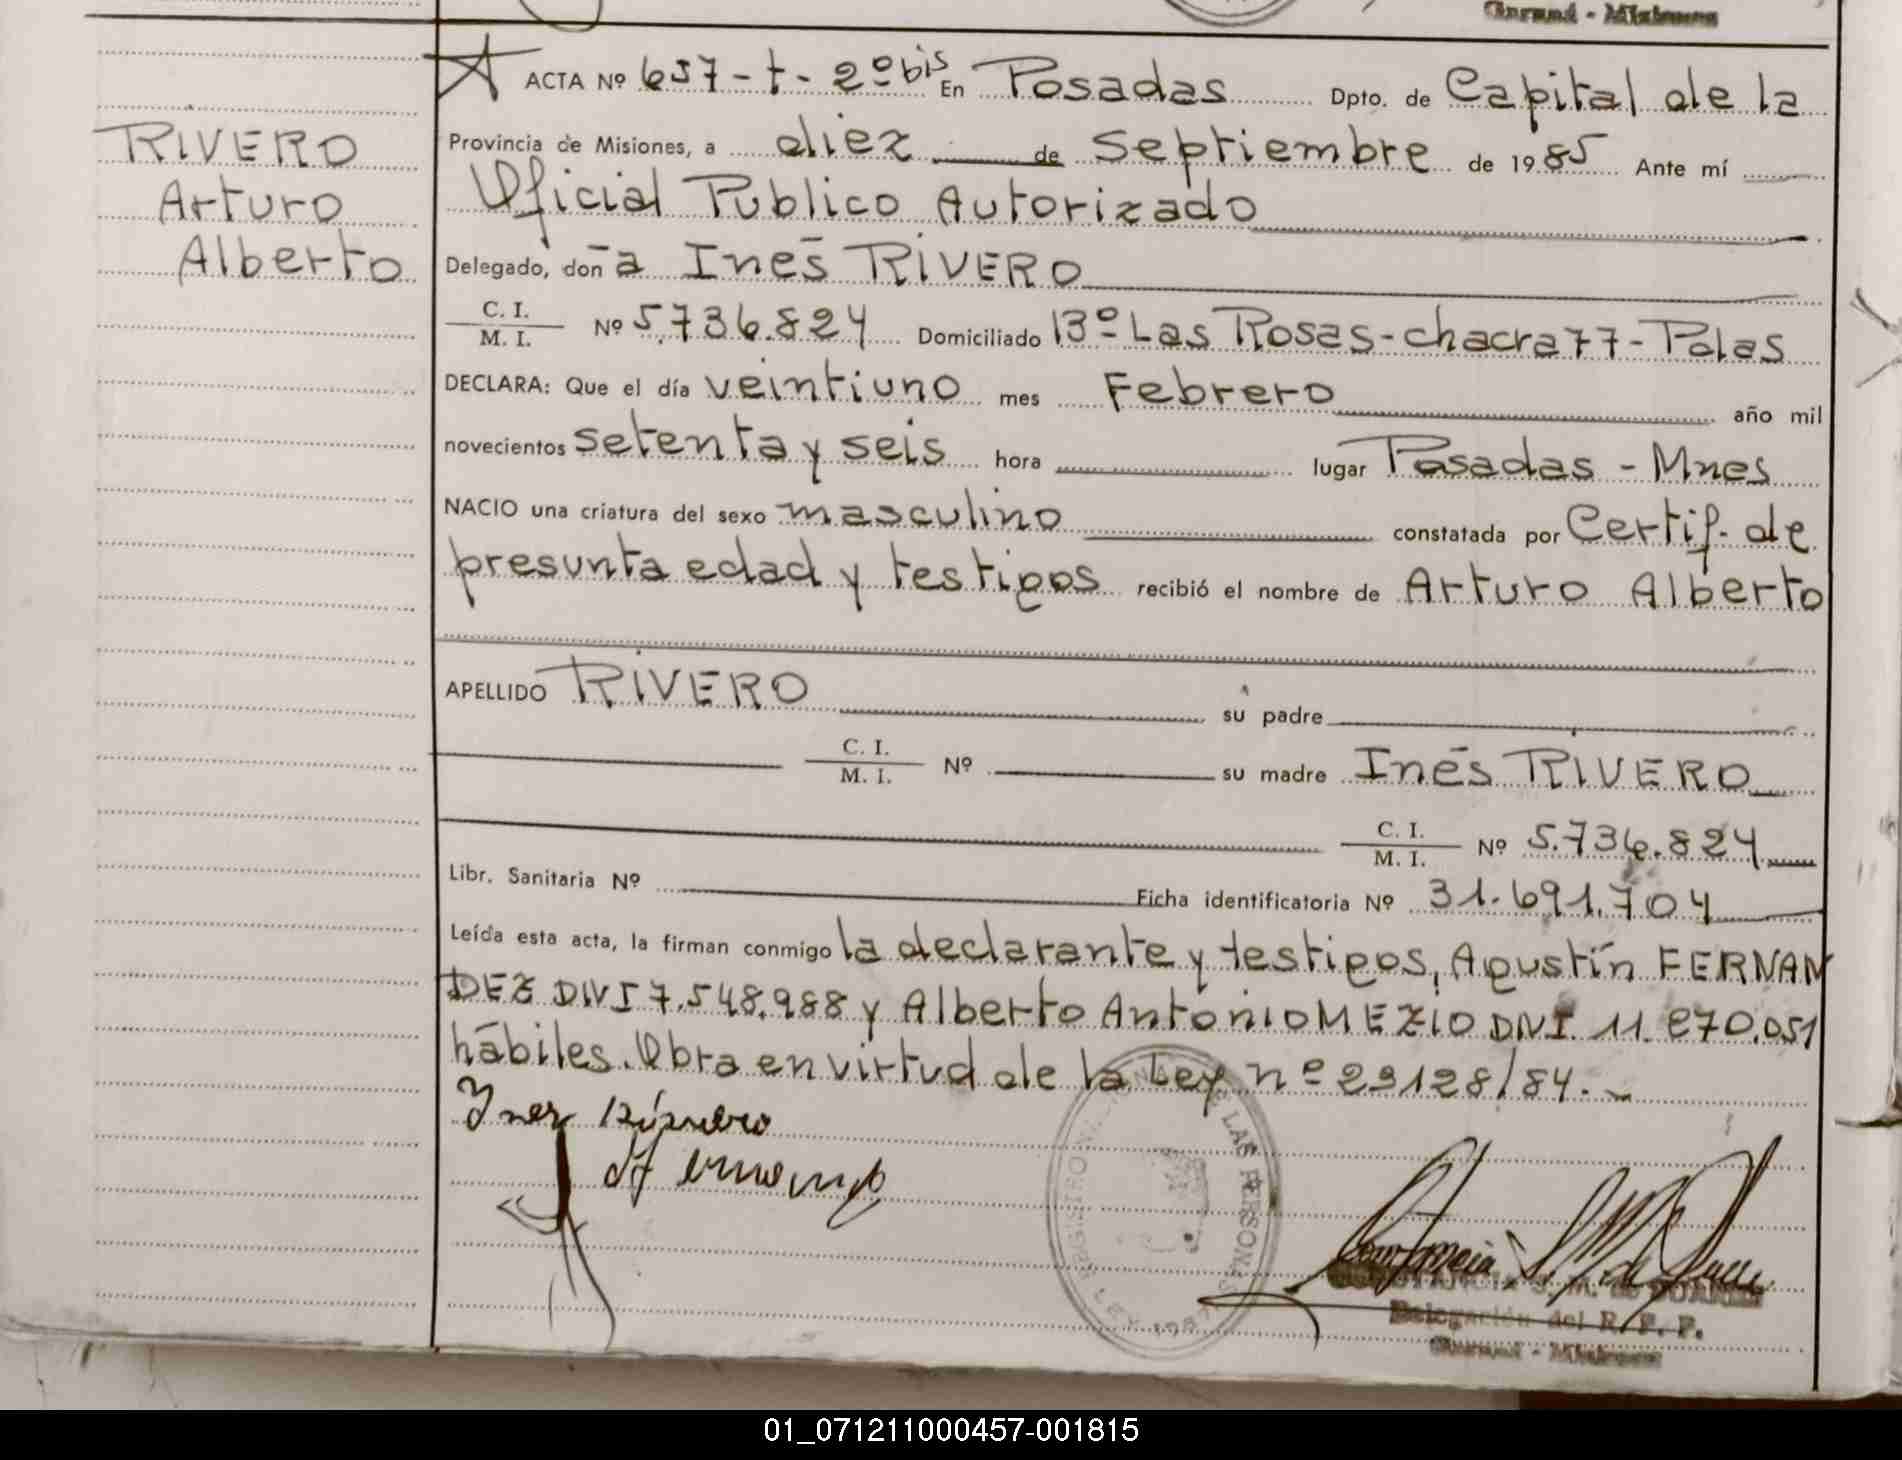 Garuná - Misiones
ACTA Nº 657-t-2º bis En Posadas Dpto. de Capital de la
RIVERO
Arturo
Alberto
Provincia de Misiones, a diez de Septiembre de 1985 Ante mí
Oficial Publico Autorizado
Delegado, don a Inés RIVERO
C. I.
M. I. Nº 5.736.824 Domiciliado 13º Las Rosas-chacra 77-Pdas
DECLARA: Que el día veintiuno mes Febrero año mil
novecientos setenta y seis hora lugar Posadas - Mnes
NACIO una criatura del sexo masculino constatada por Certif. de
presunta edad y testigos recibió el nombre de Arturo Alberto
APELLIDO RIVERO su padre
C. I.
M. I. Nº su madre Inés RIVERO
C. I.
M. I. Nº 5.736.824
Libr. Sanitaria Nº Ficha identificatoria Nº 31.691.704
Leída esta acta, la firman conmigo la declarante y testigos, Agustín FERNAN
DEZ DNI 7.548.988 y Alberto Antonio MEZIO DNI. 11.870.051
hábiles. Obra en virtud de la Ley nº 23128/84.-
Ines Rivero
REGISTRO DE LAS PERSONAS
LEY
Delegación del R. P. P.
Garuná - Misiones
01_071211000457-001815